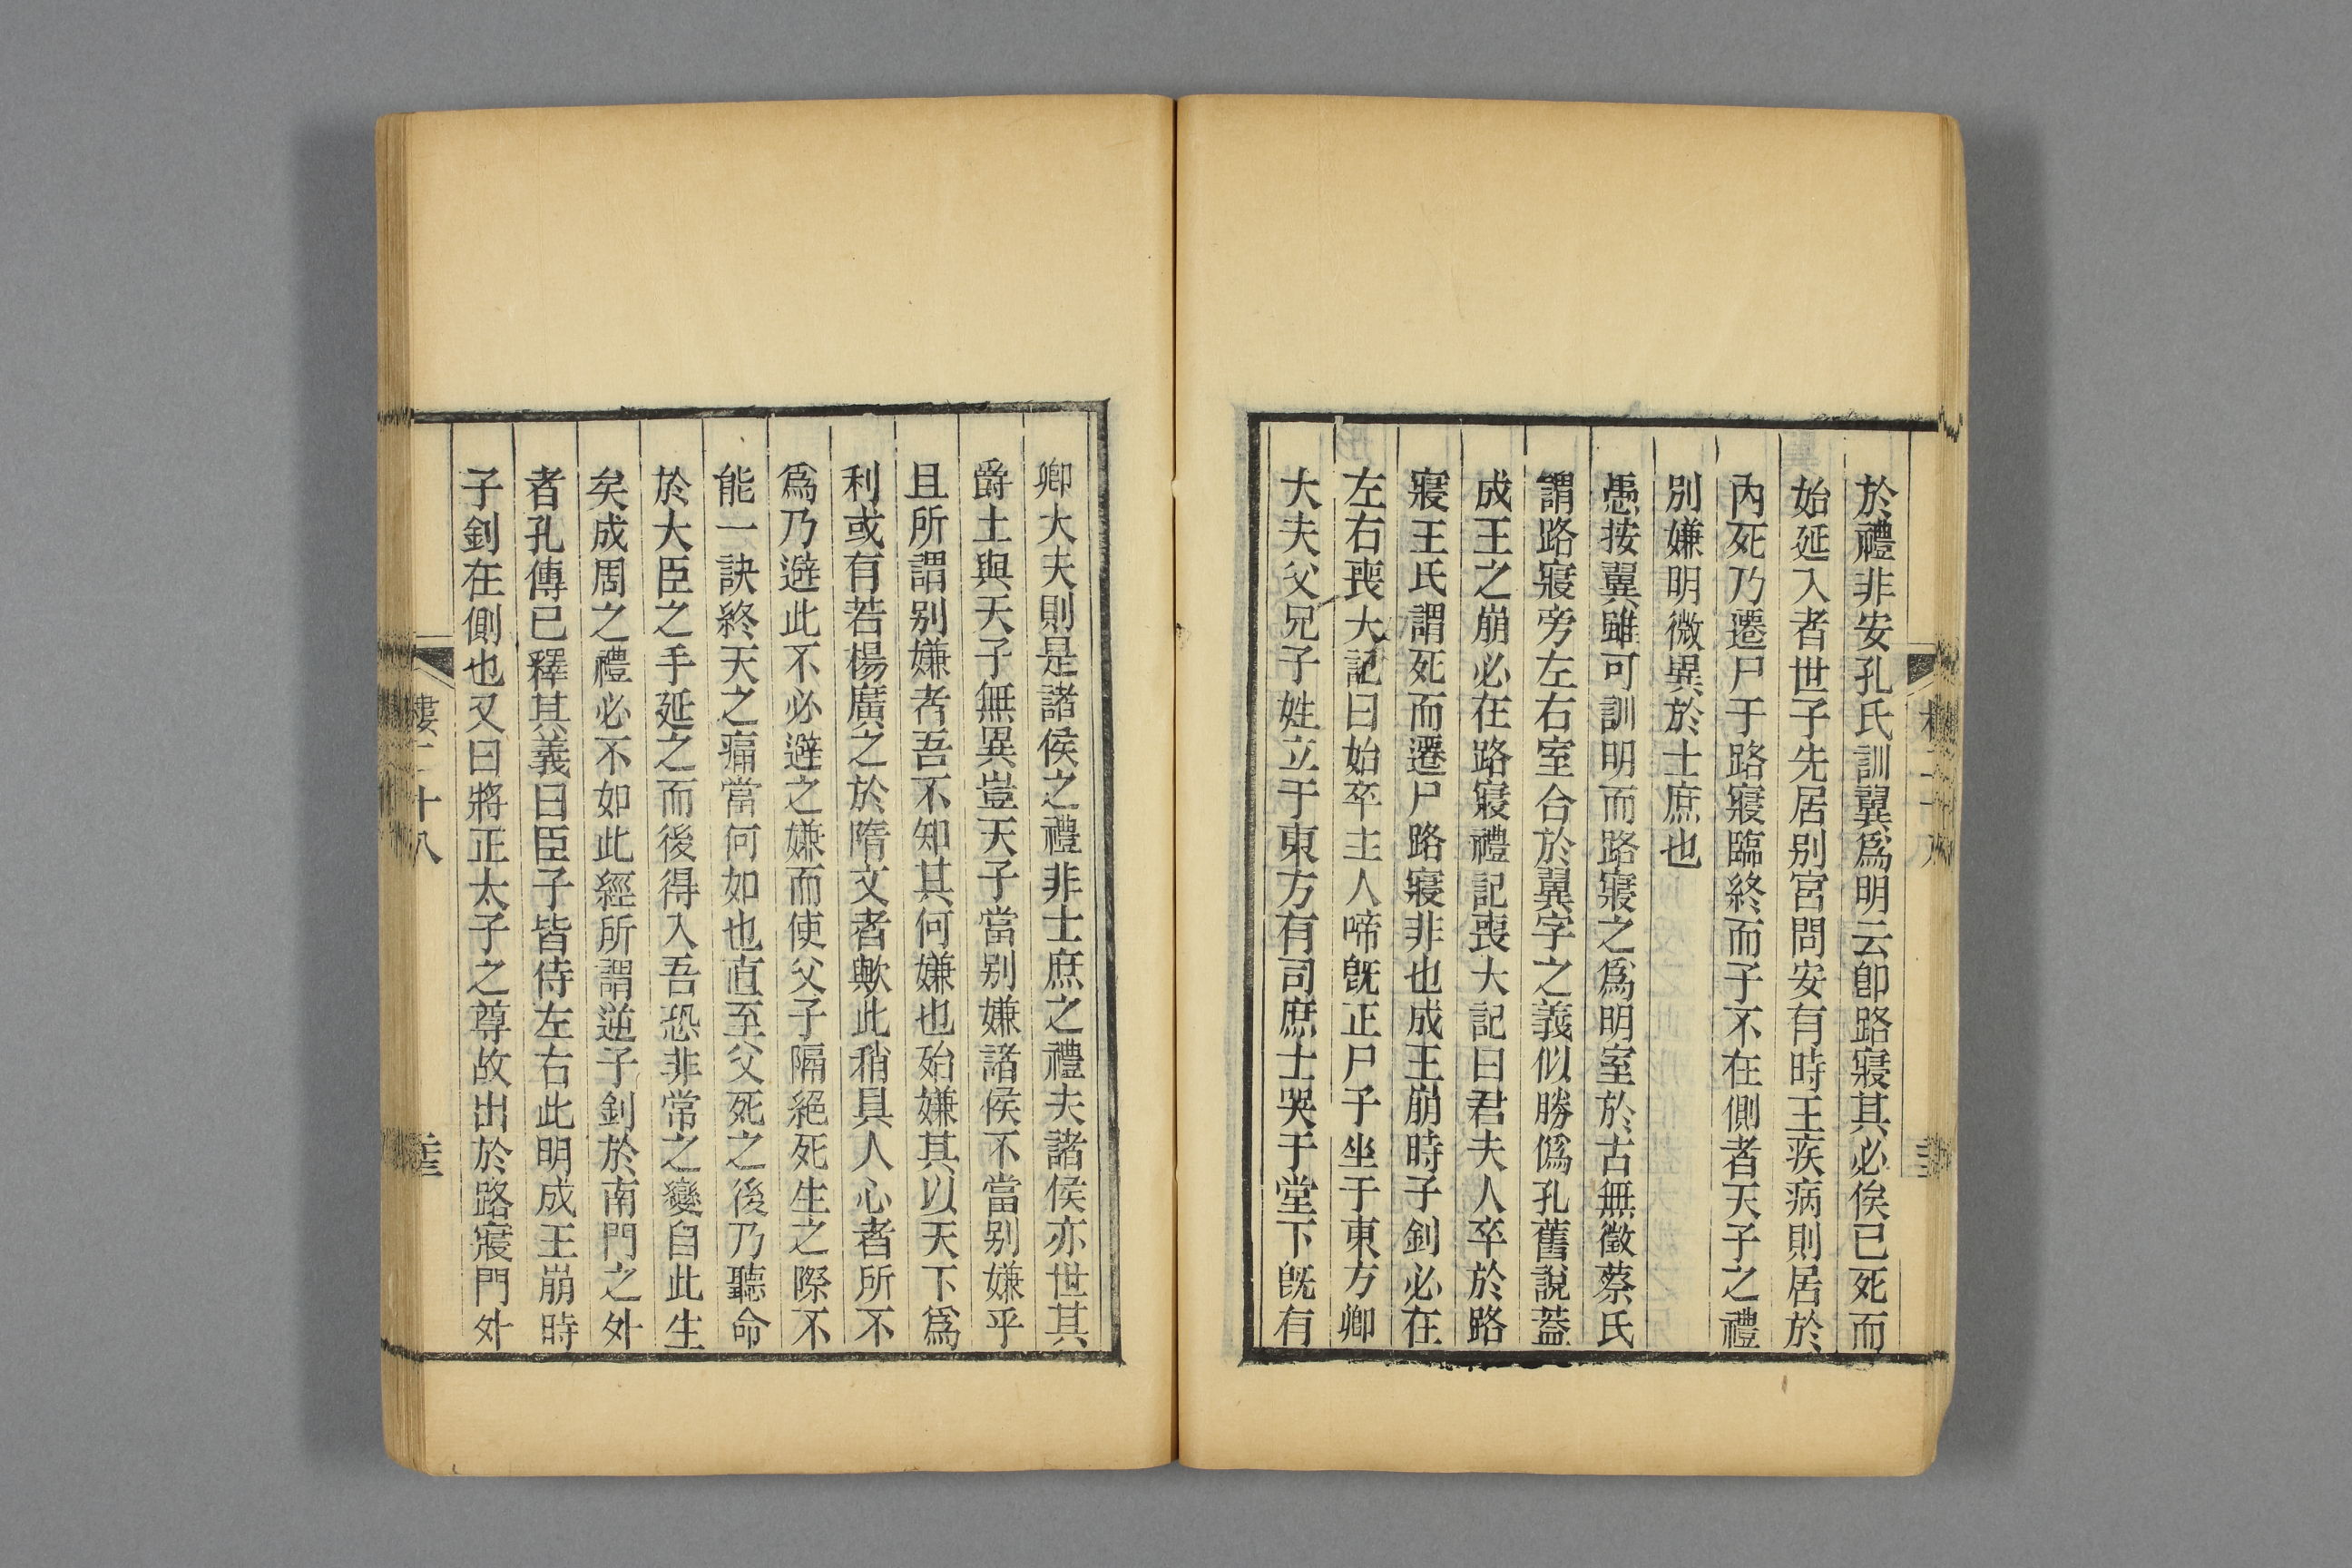 於禮非安孔氏訓翼爲明云卽路寢其必俟已死而
始延入者世子先居别宮問安有時王疾病則居於
內死乃遷尸于路寢臨終而子不在側者天子之禮
别嫌明微異於士庶也
愚按翼雖可訓明而路寢之爲明室於古無徵蔡氏
謂路寢旁左右室合於翼字之義似勝僞孔舊說蓋
成王之崩必在路寢禮記喪大記曰君夫人卒於路
寢王氏謂死而遷尸路寢非也成王崩時子釗必在
左右喪大記曰始卒主人啼旣正尸子坐于東方卿
大夫父兄子姓立于東方有司庶士哭于堂下旣有
卿大夫則是諸侯之禮非士庶之禮夫諸侯亦世其
爵土與天子無異豈天子當别嫌諸侯不當别嫌乎
且所謂别嫌者吾不知其何嫌也殆嫌其以天下爲
利或有若楊廣之於隋文者歟此稍具人心者所不
爲乃避此不必避之嫌而使父子隔絕死生之際不
能一訣終天之痛當何如也直至父死之後乃聽命
於大臣之手延之而後得入吾恐非常之變自此生
矣成周之禮必不如此經所謂逆子釗於南門之外
者孔傳已釋其義曰臣子皆侍左右此明成王崩時
子釗在側也又曰將正太子之尊故出於路寢門外
樓二十八